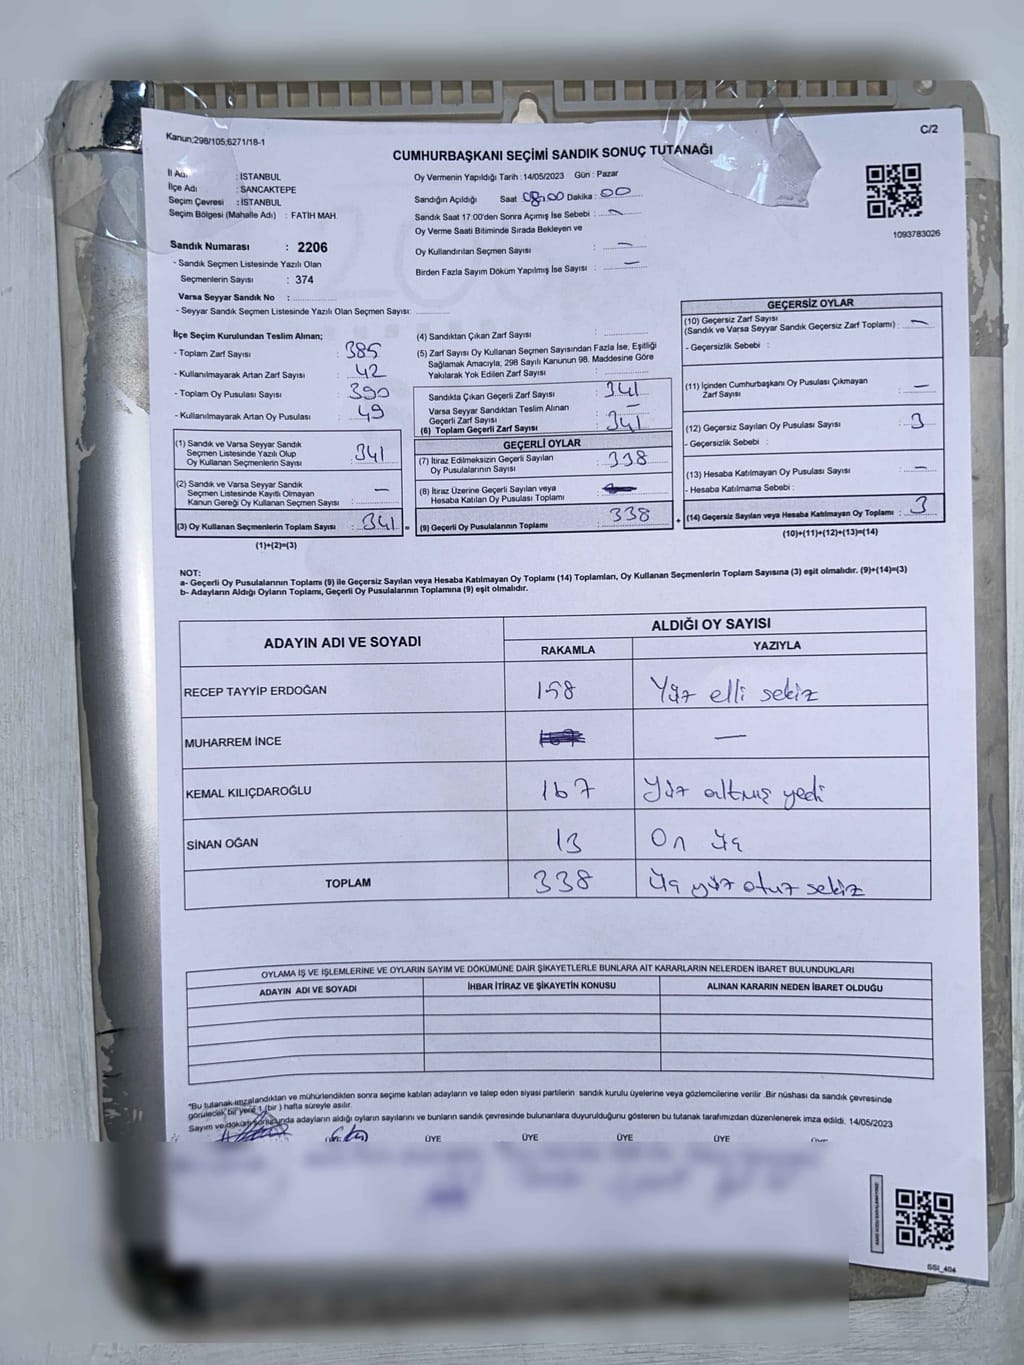 Kanun;298/105;6271/18-1
C/2
CUMHURBAŞKANI SEÇİMİ SANDIK SONUÇ TUTANAĞI
İl Adı : İSTANBUL
İlçe Adı : SANCAKTEPE
Seçim Çevresi : İSTANBUL
Seçim Bölgesi (Mahalle Adı) : FATİH MAH.
Sandık Numarası : 2206
- Sandık Seçmen Listesinde Yazılı Olan
Seçmenlerin Sayısı : 374
Varsa Seyyar Sandık No :
- Seyyar Sandık Seçmen Listesinde Yazılı Olan Seçmen Sayısı:
Oy Vermenin Yapıldığı Tarih :14/05/2023 Gün : Pazar
Sandığın Açıldığı Saat 08:00 Dakika : 00
Sandık Saat 17:00'den Sonra Açımış İse Sebebi : –
Oy Verme Saati Bitiminde Sırada Bekleyen ve
Oy Kullandırılan Seçmen Sayısı : –
Birden Fazla Sayım Döküm Yapılmış İse Sayısı : –
1093783026
İlçe Seçim Kurulundan Teslim Alınan;
- Toplam Zarf Sayısı : 385
- Kullanılmayarak Artan Zarf Sayısı : 42
- Toplam Oy Pusulası Sayısı : 390
- Kullanılmayarak Artan Oy Pusulası : 49
(1) Sandık ve Varsa Seyyar Sandık
Seçmen Listesinde Yazılı Olup
Oy Kullanan Seçmenlerin Sayısı : 341
(2) Sandık ve Varsa Seyyar Sandık
Seçmen Listesinde Kayıtlı Olmayan
Kanun Gereği Oy Kullanan Seçmen Sayısı : –
(3) Oy Kullanan Seçmenlerin Toplam Sayısı : 341 =
(1)+(2)=(3)
(4) Sandıktan Çıkan Zarf Sayısı :
(5) Zarf Sayısı Oy Kullanan Seçmen Sayısından Fazla İse, Eşitliği
Sağlamak Amacıyla; 298 Sayılı Kanunun 98. Maddesine Göre
Yakılarak Yok Edilen Zarf Sayısı :
Sandıkta Çıkan Geçerli Zarf Sayısı : 341
Varsa Seyyar Sandıktan Teslim Alınan
Geçerli Zarf Sayısı : –
(6) Toplam Geçerli Zarf Sayısı : 341
GEÇERLİ OYLAR
(7) İtiraz Edilmeksizin Geçerli Sayılan
Oy Pusulalarının Sayısı : 338
(8) İtiraz Üzerine Geçerli Sayılan veya
Hesaba Katılan Oy Pusulası Toplamı :
(9) Geçerli Oy Pusulalarının Toplamı : 338 +
GEÇERSİZ OYLAR
(10) Geçersiz Zarf Sayısı
(Sandık ve Varsa Seyyar Sandık Geçersiz Zarf Toplamı) : –
- Geçersizlik Sebebi :
(11) İçinden Cumhurbaşkanı Oy Pusulası Çıkmayan
Zarf Sayısı : –
(12) Geçersiz Sayılan Oy Pusulası Sayısı : 3
- Geçersizlik Sebebi :
(13) Hesaba Katılmayan Oy Pusulası Sayısı : –
- Hesaba Katılmama Sebebi :
(14) Geçersiz Sayılan veya Hesaba Katılmayan Oy Toplamı : 3
(10)+(11)+(12)+(13)=(14)
NOT:
a- Geçerli Oy Pusulalarının Toplamı (9) ile Geçersiz Sayılan veya Hesaba Katılmayan Oy Toplamı (14) Toplamları, Oy Kullanan Seçmenlerin Toplam Sayısına (3) eşit olmalıdır. (9)+(14)=(3)
b- Adayların Aldığı Oyların Toplamı, Geçerli Oy Pusulalarının Toplamına (9) eşit olmalıdır.
ADAYIN ADI VE SOYADI
ALDIĞI OY SAYISI
RAKAMLA YAZIYLA
RECEP TAYYİP ERDOĞAN 158 Yüz elli sekiz
MUHARREM İNCE –
KEMAL KILIÇDAROĞLU 167 Yüz altmış yedi
SİNAN OĞAN 13 On üç
TOPLAM 338 Üç yüz otuz sekiz
OYLAMA İŞ VE İŞLEMLERİNE VE OYLARIN SAYIM VE DÖKÜMÜNE DAİR ŞİKAYETLERLE BUNLARA AİT KARARLARIN NELERDEN İBARET BULUNDUKLARI
ADAYIN ADI VE SOYADI İHBAR İTİRAZ VE ŞİKAYETİN KONUSU ALINAN KARARIN NEDEN İBARET OLDUĞU
"Bu tutanak imzalandıktan ve mühürlendikten sonra seçime katılan adayların ve talep eden siyasi partilerin sandık kurulu üyelerine veya gözlemcilerine verilir .Bir nüshası da sandık çevresinde
görülecek bir yere 1 (bir ) hafta süreyle asılır.
Sayım ve döküm sonucunda adayların aldığı oyların sayılarını ve bunların sandık çevresinde bulunanlara duyurulduğunu gösteren bu tutanak tarafımızdan düzenlenerek imza edildi. 14/05/2023
ÜYE ÜYE ÜYE ÜYE ÜYE
SSİ_404